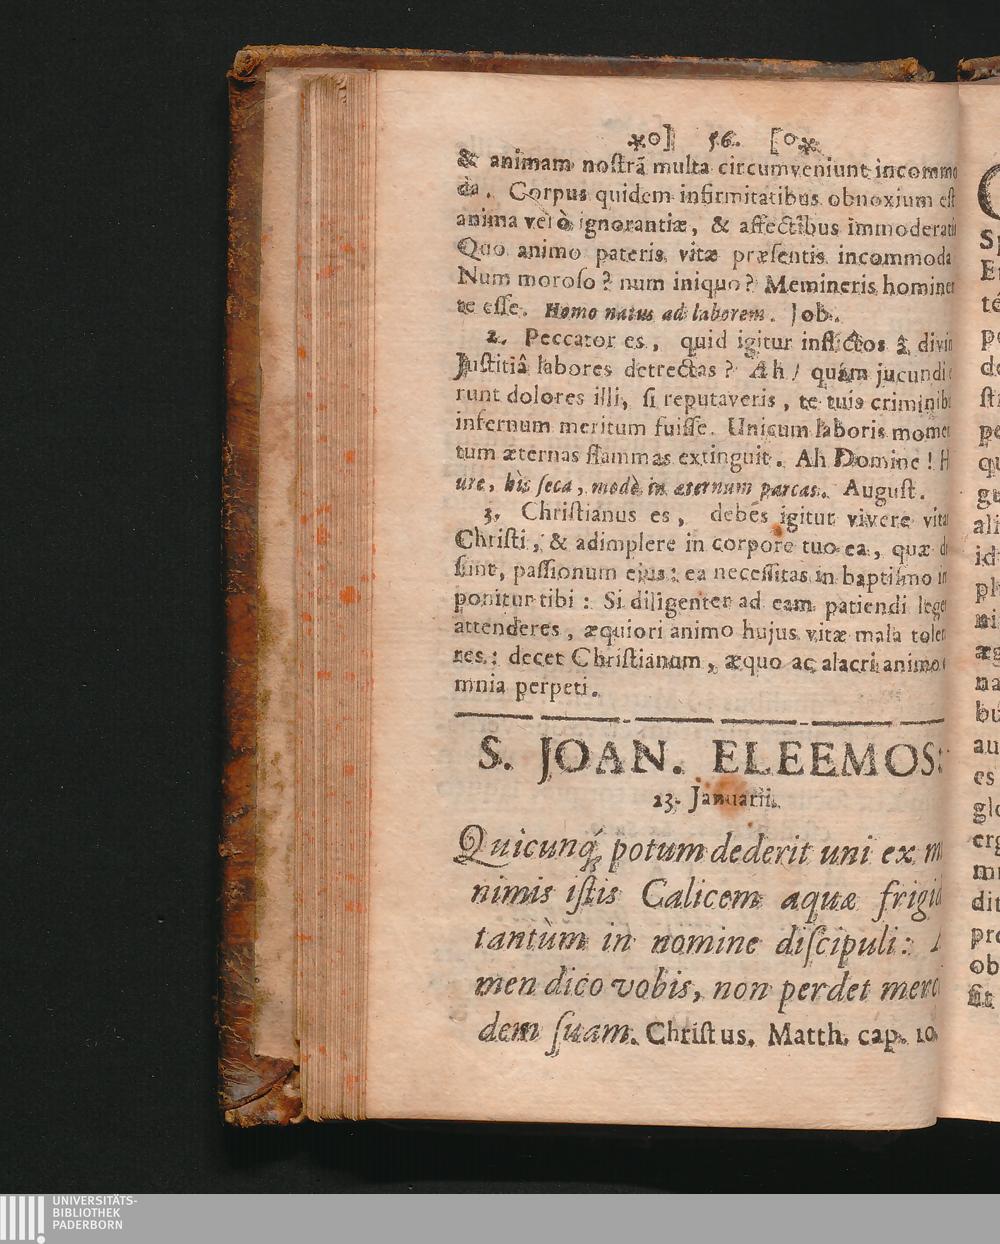 *o] 56. [o*
& animam nostrã multa circumveniunt incommo
da. Corpus quidem infirmitatibus obnoxium est
anima verò ignorantiæ, & affectibus immoderati
Quo animo pateris vitæ præsentis incommoda
Num moroso? num iniquo? Memineris homine
te esse. Homo natus ad laborem. Job.
2. Peccator es, quid igitur inflictos à divi
Justitiâ labores detrectas? Ah! quàm jucundi
runt dolores illi, si reputaveris, te tuis criminib
infernum meritum fuisse. Unicum laboris mome
tum æternas flammas extinguit. Ah Domine! H
ure, hìc seca, modò in æternum parcas. August.
3. Christianus es, debes igitur vivere vita
Christi, & adimplere in corpore tuo ea, quæ d
sunt, passionum ejus; ea necessitas in baptismo i
ponitur tibi: Si diligenter ad eam patiendi lege
attenderes, æquiori animo hujus vitæ mala toler
res: decet Christianum, æquo ac alacri animo
mnia perpeti.
S. JOAN. ELEEMOS:
23. Januarii.
Quicunq́; potum dederit uni ex m
nimis istis Calicem aquæ frigid
tantùm in nomine discipuli:
men dico vobis, non perdet merc
dem suam. Christus, Matth. cap. 10.
S
E
té
pe
de
sti
pe
qu
gu
ali
id
pl
ni
æg
na
bu
au
es
glo
erg
mu
dit
pro
ob
sit
UNIVERSITÄTS-
BIBLIOTHEK
PADERBORN